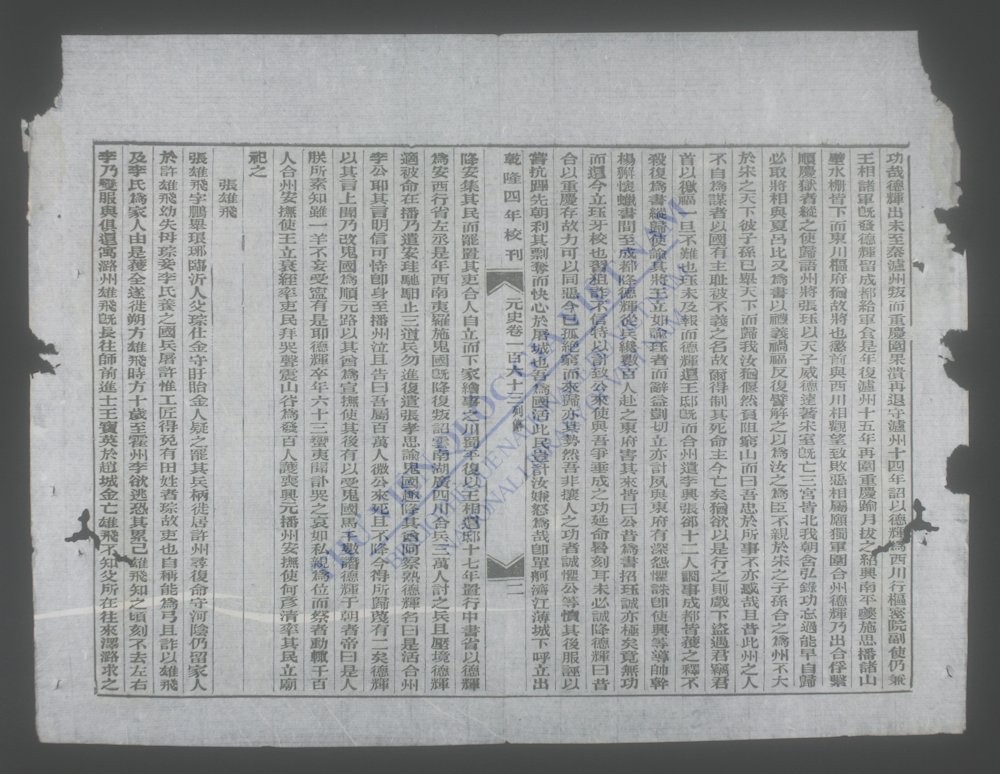 功哉德輝出未至秦瀘州叛而重慶圍果潰再退守瀘州十四年詔以德輝爲西川行樞密院副使仍兼
王相諸軍既發德輝留成都給軍食是年復瀘州十五年再圍重慶踰月拔之紹興南平夔施思播諸山
壁水柵皆下而東川樞府猶故將也懲前與西川相觀望致敗惡相屬願獨軍圍合州德輝乃出合俘繫
順慶獄者縱之使歸語州將張珏以天子威德遠著宋室既亡三宮皆北我朝含弘錄功忘過能早自歸
必取將相與夏呂比又爲書以禮義禍福反復譬解之以爲汝之爲臣不親於宋之子孫合之爲州不大
於宋之天下彼子孫已舉天下而歸我汝猶偃然負阻窮山而曰吾忠於所事不亦惑哉且昔此州之人
不自爲謀者以國有主恥被不義之名故爾得制其死命主今亡矣猶欲以是行之則戲下盜遇君竊君
首以徼福一旦不難也珏未及報而德輝還王邸既而合州遣李興張郃十二人詗事成都皆獲之釋不
殺復爲書縱歸使諭其將王立如諭珏者而辭益剴切立亦計夙與東府有深怨懼誅即使興等導帥幹
楊獬懷蠟書間至成都降德輝從兵纔數百人赴之東府害其來皆曰公昔爲書招珏誠亦極矣竟無功
而還今立珏牙校也習狙詐不信特以計致公來使與吾爭垂成之功延命晷刻耳未必誠降德輝曰昔
合以重慶存故力可以同惡今已孤絕窮而來歸亦其勢然吾非攘人之功者誠懼公等憤其後服誣以
嘗抗蹕先朝利其剽奪而快心於屠城也吾爲國活此民豈計汝嫌怒爲哉即單舸濟江薄城下呼立出
乾隆四年校刊
元史卷一百六十三 列傳
二
降安集其民而罷置其吏合人自立而下家繪事之川蜀平復以王相還邸十七年置行中書省以德輝
爲安西行省左丞是年西南夷羅施鬼國既降復叛詔雲南湖廣四川合兵三萬人討之兵且壓境德輝
適被命在播乃遣安珪馳駬止三道兵勿進復遣張孝思諭鬼國趣降其酋阿察熟德輝名曰是活合州
李公耶其言明信可恃即身至播州泣且告曰吾屬百萬人微公來死且不降今得所歸蔑有二矣德輝
以其言上聞乃改鬼國爲順元路以其酋爲宣撫使其後有以受鬼國馬千數譖德輝于朝者帝曰是人
朕所素知雖一羊不妄受寧有是耶德輝卒年六十三蠻夷聞訃哭之哀如私親爲位而祭者動輒千百
人合州安撫使王立衰絰率吏民拜哭聲震山谷爲發百人護喪興元播州安撫使何彥清率其民立廟
祀之
張雄飛
張雄飛字鵬舉琅琊臨沂人父琮仕金守盱眙金人疑之罷其兵柄徙居許州尋復命守河陰仍留家人
於許雄飛幼失母琮妾李氏養之國兵屠許惟工匠得免有田姓者琮故吏也自稱能爲弓且詐以雄飛
及李氏爲家人由是獲全遂徙朔方雄飛時方十歲至霍州李欲逃恐其累己雄飛知之頃刻不去左右
李乃變服與俱還寓潞州雄飛既長往師前進士王寶英於趙城金亡雄飛不知父所在往來澤潞求之
THƯ VIỆN QUỐC GIA VIỆT NAM
NATIONAL LIBRARY OF VIETNAM